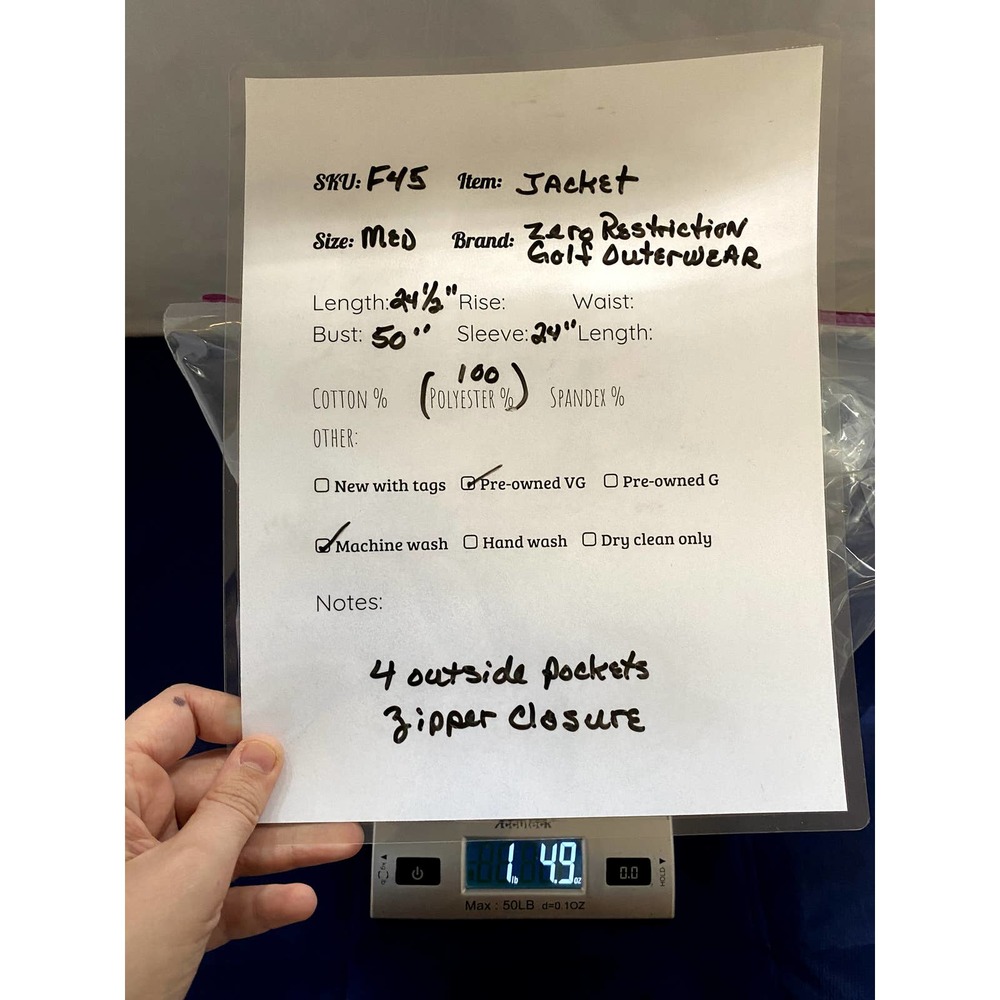 SKU: F45 Item: JACKET
Size: MED Brand: Zero Restriction
Golf OuterWEAR
Length: 24 1/2" Rise: Waist:
Bust: 50" Sleeve: 24" Length:
100
COTTON % (POLYESTER %) SPANDEX %
OTHER:
New with tags Pre-owned VG Pre-owned G
Machine wash Hand wash Dry clean only
Notes:
4 outside pockets
Zipper Closure
Accuteck
1 lb 4.9 oz
0.0
HOLD
Max : 50LB d=0.1OZ